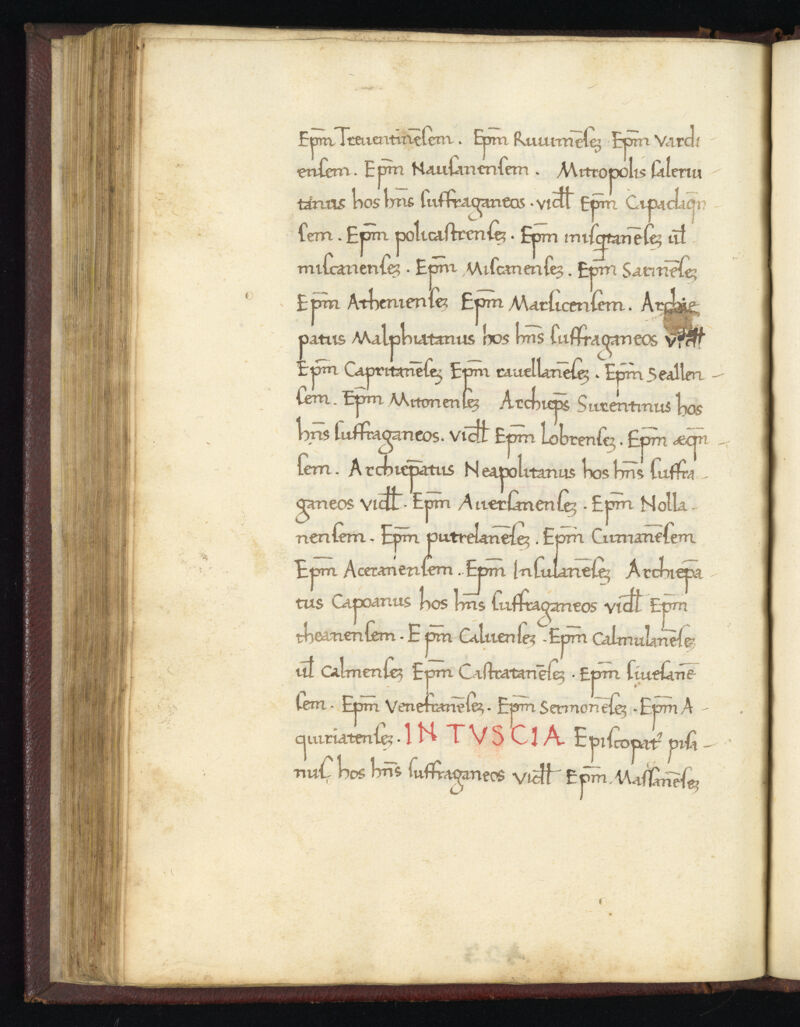 Ep̄m Treuentinēſem . Ep̄m Ruuumēſeꝫ Ep̄m Vardi
enſem . Ep̄m Nauſanenſem . Mitropolis ſalerni
tanus hos hn̄s ſuffraganeos . vidꝉꝉ Ep̄m Capadaqn̄
ſem . Ep̄m policaſtrenſeꝫ . Ep̄m miſqtanēſeꝫ uꝉ
miſcanenſeꝫ . Ep̄m Miſcanenſeꝫ . Ep̄m Sarinēſeꝫ
Ep̄m Athenienſeꝫ Ep̄m Marſicenſem . Archie
patus Malphiatanus hos hn̄s ſuffraganeos vidꝉꝉ
Ep̄m Capritanēſeꝫ Ep̄m rauellanēſeꝫ . Ep̄m Seallen -
ſem . Ep̄m Mitonenſeꝫ Archiep̄s Surentinus hos
hn̄s ſuffraganeos . vidꝉꝉ Ep̄m Lobrenſeꝫ . Ep̄m æqn̄ -
ſem . Archiep̄atus Neapolitanus hos hn̄s ſuffra -
ganeos vidꝉꝉ . Ep̄m Auerſanenſeꝫ . Ep̄m Nolla -
nenſem . Ep̄m putrelanēſeꝫ . Ep̄m Cumanēſem
Ep̄m Aceranenſem . Ep̄m Inſulanēſeꝫ Archiep̄a
tus Capoanus hos hn̄s ſuffraganeos vidꝉꝉ Ep̄m
theanenſem . Ep̄m Caluenſeꝫ . Ep̄m Calmulanēſeꝫ
uꝉ calmenſeꝫ Ep̄m Caſtratanēſeꝫ . Ep̄m ſiueſanē
ſem . Ep̄m Venefranēſeꝫ . Ep̄m Sermonēſeꝫ . Ep̄m A -
quiriatenſeꝫ . IN TVSCIA Epiſcopat⁹ piſa -
nuſ hos hn̄s ſuffraganeos vidꝉꝉ Ep̄m Maſſanēſeꝫ